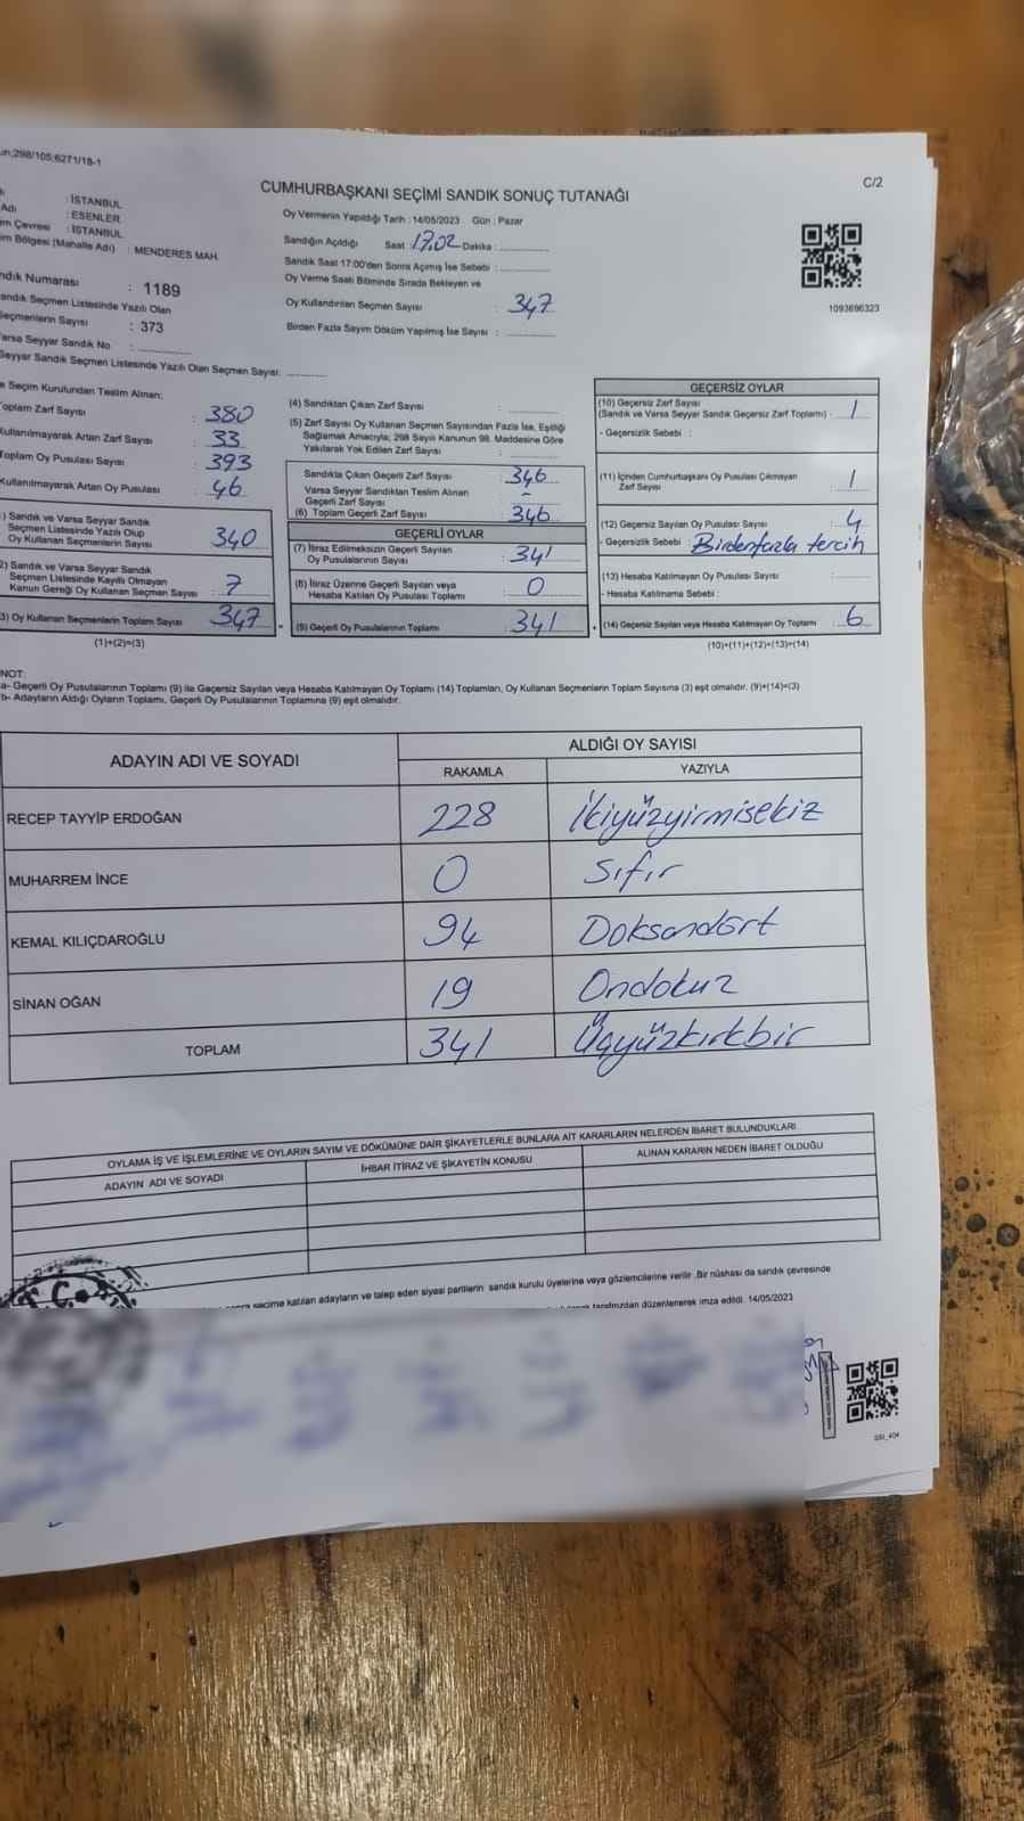 298/105;6271/18-1
C/2
CUMHURBAŞKANI SEÇİMİ SANDIK SONUÇ TUTANAĞI
: İSTANBUL
Adı : ESENLER
m Çevresi : İSTANBUL
im Bölgesi (Mahalle Adı) : MENDERES MAH.
Oy Vermenin Yapıldığı Tarih : 14/05/2023 Gün : Pazar
Sandığın Açıldığı Saat : 17.02 Dakika :
Sandık Saat 17:00'den Sonra Açılmış İse Sebebi :
Oy Verme Saati Bitiminde Sırada Bekleyen ve
Oy Kullandırılan Seçmen Sayısı : 347
Birden Fazla Sayım Döküm Yapılmış İse Sayısı :
1093696323
ndık Numarası : 1189
andık Seçmen Listesinde Yazılı Olan
Seçmenlerin Sayısı : 373
Varsa Seyyar Sandık No :
Seyyar Sandık Seçmen Listesinde Yazılı Olan Seçmen Sayısı:
e Seçim Kurulundan Teslim Alınan;
oplam Zarf Sayısı : 380
Kullanılmayarak Artan Zarf Sayısı : 33
Toplam Oy Pusulası Sayısı : 393
Kullanılmayarak Artan Oy Pusulası : 46
) Sandık ve Varsa Seyyar Sandık
Seçmen Listesinde Yazılı Olup
Oy Kullanan Seçmenlerin Sayısı : 340
2) Sandık ve Varsa Seyyar Sandık
Seçmen Listesinde Kayıtlı Olmayan
Kanun Gereği Oy Kullanan Seçmen Sayısı : 7
3) Oy Kullanan Seçmenlerin Toplam Sayısı : 347
(1)+(2)=(3)
(4) Sandıktan Çıkan Zarf Sayısı :
(5) Zarf Sayısı Oy Kullanan Seçmen Sayısından Fazla İse, Eşitliği
Sağlamak Amacıyla; 298 Sayılı Kanunun 98. Maddesine Göre
Yakılarak Yok Edilen Zarf Sayısı :
Sandıkta Çıkan Geçerli Zarf Sayısı : 346
Varsa Seyyar Sandıktan Teslim Alınan
Geçerli Zarf Sayısı : -
(6) Toplam Geçerli Zarf Sayısı : 346
GEÇERLİ OYLAR
(7) İtiraz Edilmeksizin Geçerli Sayılan
Oy Pusulalarının Sayısı : 341
(8) İtiraz Üzerine Geçerli Sayılan veya
Hesaba Katılan Oy Pusulası Toplamı : 0
(9) Geçerli Oy Pusulalarının Toplamı : 341
GEÇERSİZ OYLAR
(10) Geçersiz Zarf Sayısı
(Sandık ve Varsa Seyyar Sandık Geçersiz Zarf Toplamı) : 1
- Geçersizlik Sebebi :
(11) İçinden Cumhurbaşkanı Oy Pusulası Çıkmayan
Zarf Sayısı : 1
(12) Geçersiz Sayılan Oy Pusulası Sayısı : 4
- Geçersizlik Sebebi : Birdenfazla tercih
(13) Hesaba Katılmayan Oy Pusulası Sayısı :
- Hesaba Katılmama Sebebi :
(14) Geçersiz Sayılan veya Hesaba Katılmayan Oy Toplamı : 6
(10)+(11)+(12)+(13)=(14)
NOT:
a- Geçerli Oy Pusulalarının Toplamı (9) ile Geçersiz Sayılan veya Hesaba Katılmayan Oy Toplamı (14) Toplamları, Oy Kullanan Seçmenlerin Toplam Sayısına (3) eşit olmalıdır. (9)+(14)=(3)
b- Adayların Aldığı Oyların Toplamı, Geçerli Oy Pusulalarının Toplamına (9) eşit olmalıdır.
ADAYIN ADI VE SOYADI
ALDIĞI OY SAYISI
RAKAMLA YAZIYLA
RECEP TAYYİP ERDOĞAN 228 İkiyüzyirmisekiz
MUHARREM İNCE 0 Sıfır
KEMAL KILIÇDAROĞLU 94 Doksandört
SİNAN OĞAN 19 Ondokuz
TOPLAM 341 Üçyüzkırkbir
OYLAMA İŞ VE İŞLEMLERİNE VE OYLARIN SAYIM VE DÖKÜMÜNE DAİR ŞİKAYETLERLE BUNLARA AİT KARARLARIN NELERDEN İBARET BULUNDUKLARI
ADAYIN ADI VE SOYADI İHBAR İTİRAZ VE ŞİKAYETİN KONUSU ALINAN KARARIN NEDEN İBARET OLDUĞU
seçime katılan adayların ve talep eden siyasi partilerin sandık kurulu üyelerine veya gözlemcilerine verilir. Bir nüshası da sandık çevresinde
tarafımızdan düzenlenerek imza edildi. 14/05/2023
T.C.